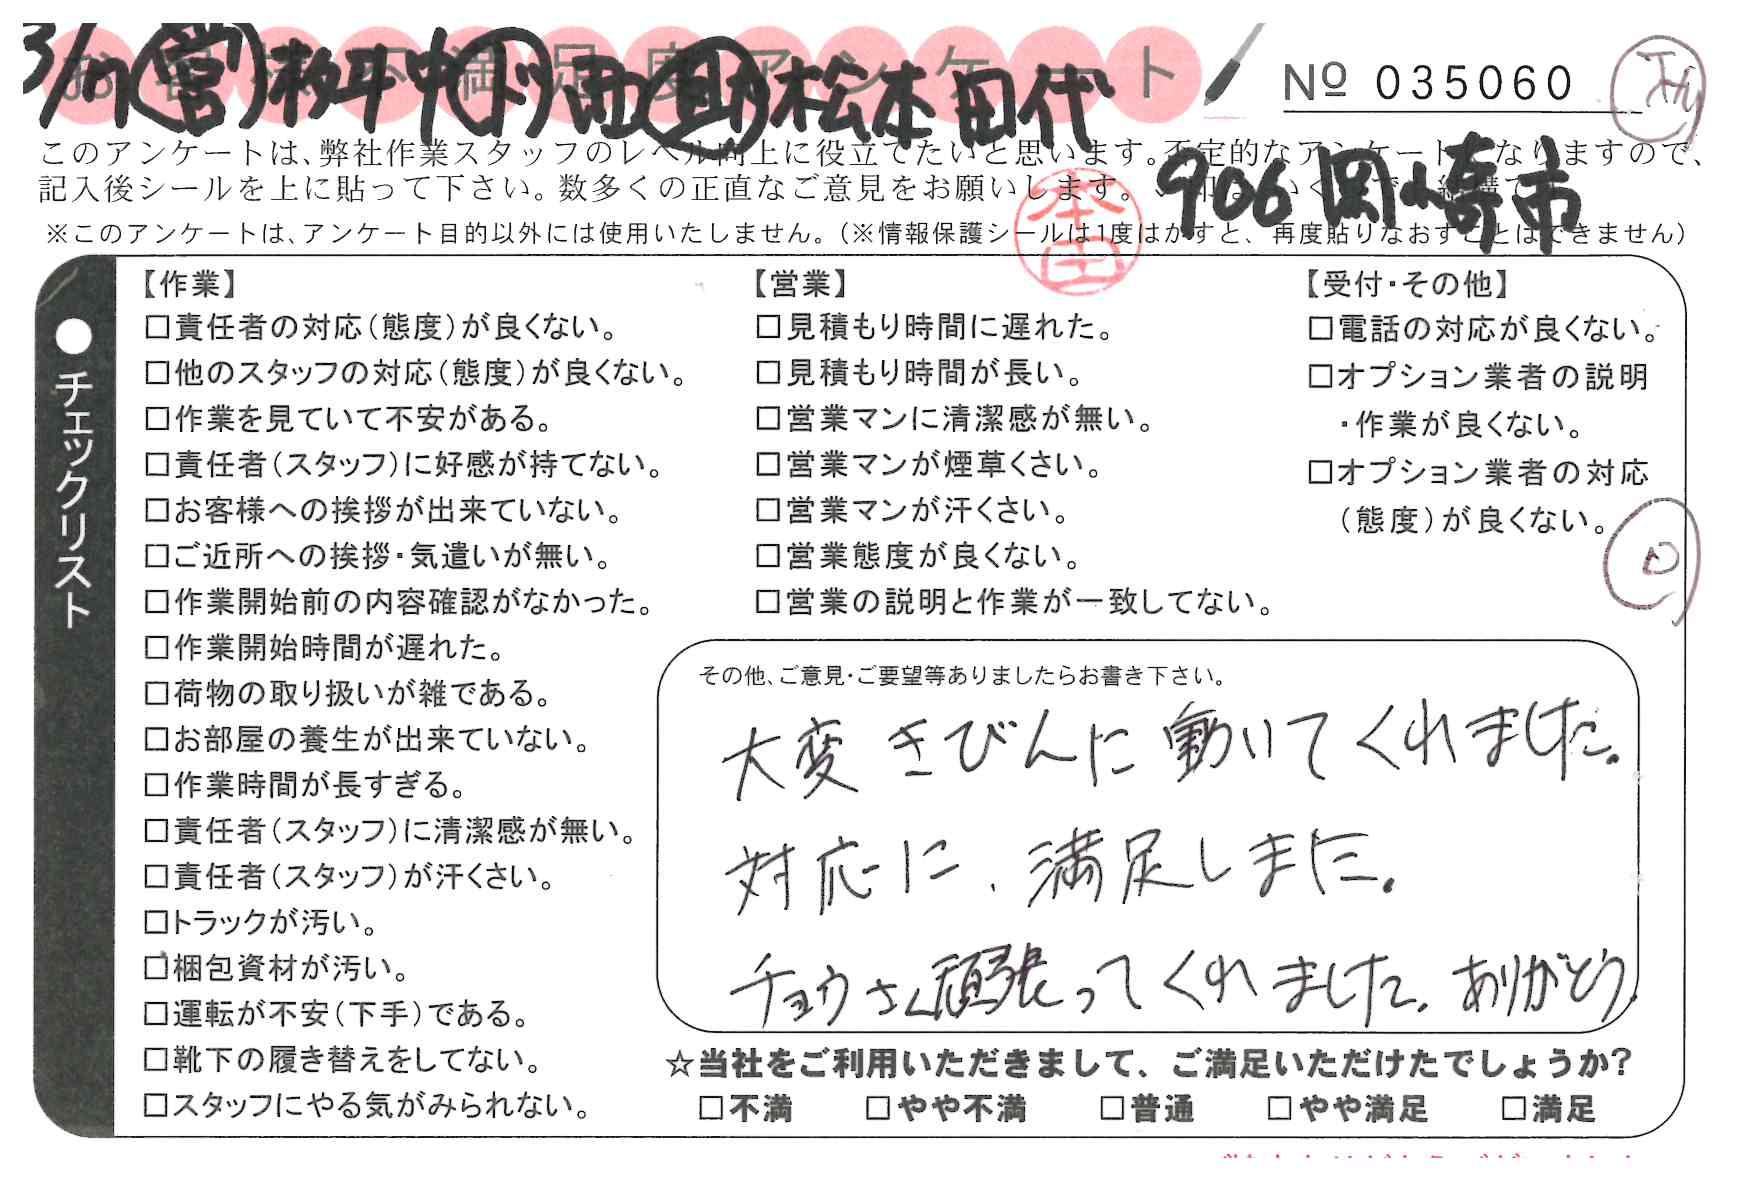 お客様不満足度アンケート
3/17 営 数斗中 ド 西 助 松本 田代
№ 035060
このアンケートは、弊社作業スタッフのレベル向上に役立てたいと思います。否定的なアンケートになりますので、
記入後シールを上に貼って下さい。数多くの正直なご意見をお願いします。
906 岡崎市
本田
※このアンケートは、アンケート目的以外には使用いたしません。(※情報保護シールは1度はがすと、再度貼りなおすことはできません)
●チェックリスト
【作業】
□責任者の対応(態度)が良くない。
□他のスタッフの対応(態度)が良くない。
□作業を見ていて不安がある。
□責任者(スタッフ)に好感が持てない。
□お客様への挨拶が出来ていない。
□ご近所への挨拶・気遣いが無い。
□作業開始前の内容確認がなかった。
□作業開始時間が遅れた。
□荷物の取り扱いが雑である。
□お部屋の養生が出来ていない。
□作業時間が長すぎる。
□責任者(スタッフ)に清潔感が無い。
□責任者(スタッフ)が汗くさい。
□トラックが汚い。
□梱包資材が汚い。
□運転が不安(下手)である。
□靴下の履き替えをしてない。
□スタッフにやる気がみられない。
【営業】
□見積もり時間に遅れた。
□見積もり時間が長い。
□営業マンに清潔感が無い。
□営業マンが煙草くさい。
□営業マンが汗くさい。
□営業態度が良くない。
□営業の説明と作業が一致してない。
【受付・その他】
□電話の対応が良くない。
□オプション業者の説明
・作業が良くない。
□オプション業者の対応
(態度)が良くない。
その他、ご意見・ご要望等ありましたらお書き下さい。
大変きびんに動いてくれました。
対応に、満足しました。
チョウさん頑張ってくれました。ありがとう。
☆当社をご利用いただきまして、ご満足いただけたでしょうか?
□不満 □やや不満 □普通 □やや満足 □満足